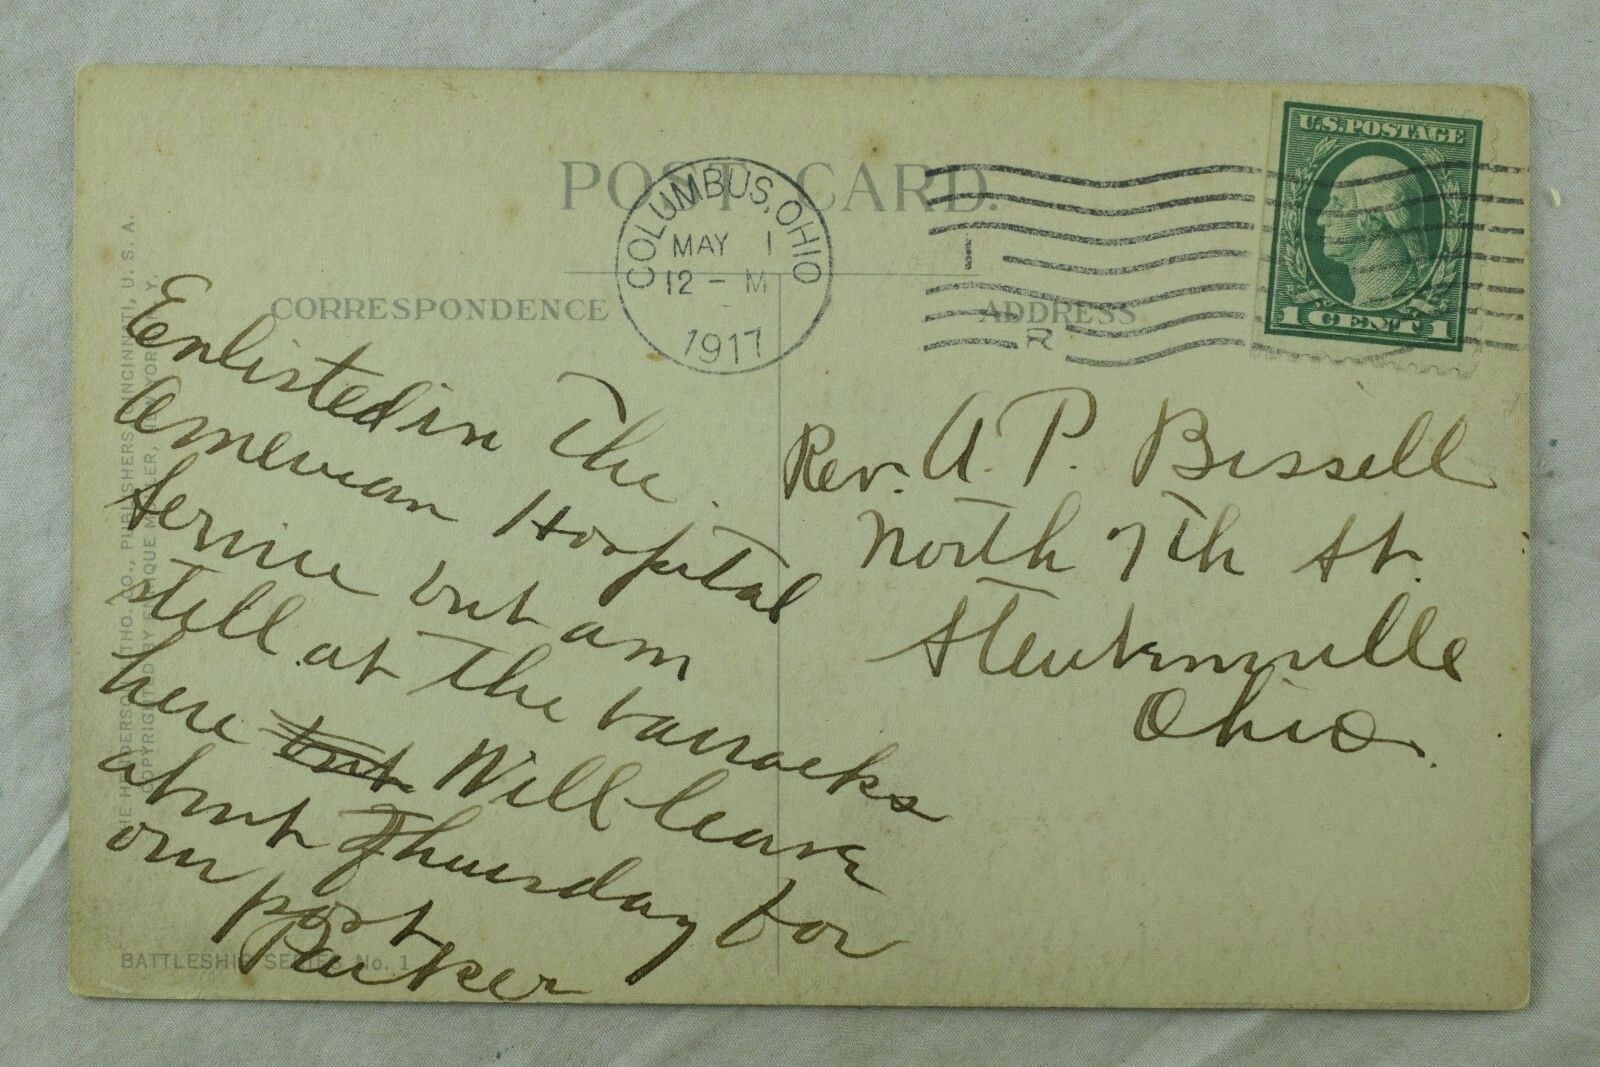 POST CARD.
COLUMBUS, OHIO
MAY 1
12 - M
1917
1
R
U.S. POSTAGE
1 CENT 1
CORRESPONDENCE
ADDRESS
Enlisted in the
American Hospital
Service but am
still at the barracks
here but Will leave
about Thursday for
our post
Parker
Rev. A. P. Bissell
North 7th St.
Steubenville
Ohio.
THE HENDERSON LITHO. CO., PUBLISHERS, CINCINNATI, U. S. A.
COPYRIGHTED BY ENRIQUE MULLER, NEW YORK, N. Y.
BATTLESHIP SERIES No. 1